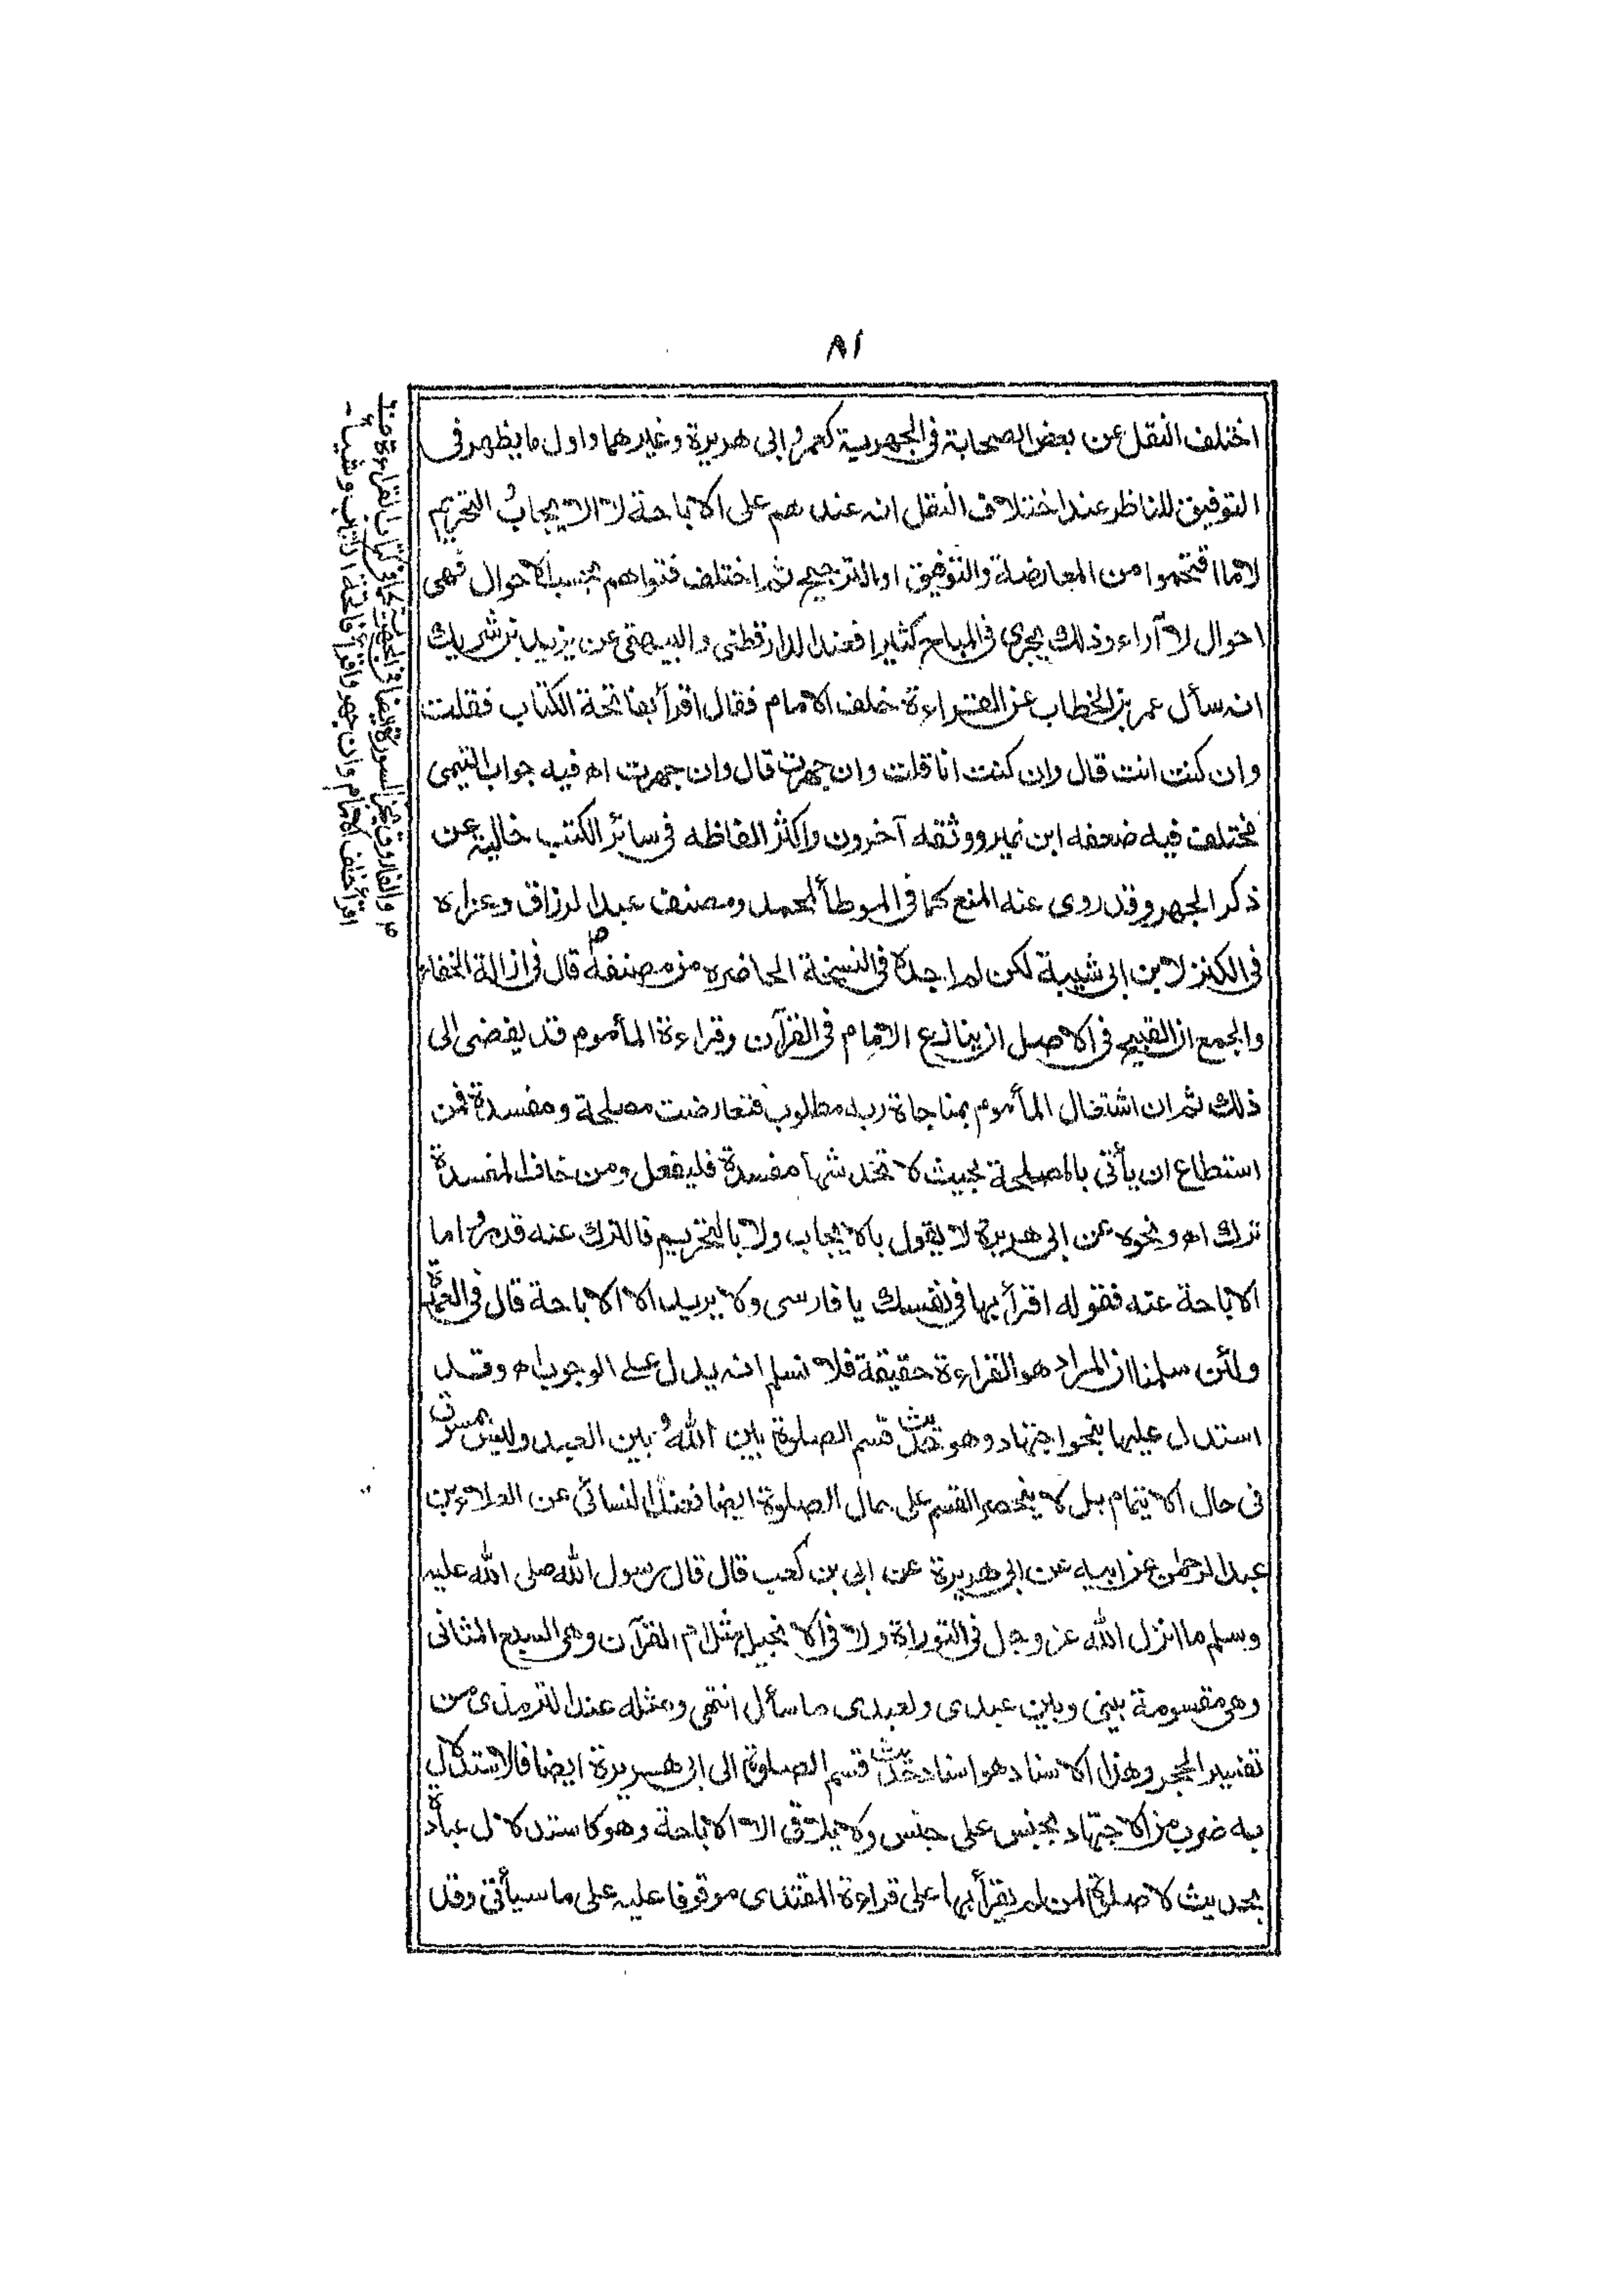 ٨١
اختلف النقل عن بعض الصحابة فى الجهرية كعمر وابى هريرة وغيرهما واول ما يظهر فى
التوفيق للناظر عند اختلاف النقل انه عندهم على الاباحة لا الايجاب والتحريم
لا ما اقتحموا من المعارضة والتوفيق او الترجيح ثم اختلف فتواهم بحسب الاحوال فهى
احوال لا آراء وذلك يجرى فى المباح كثيرا فعند الدارقطنى والبيهقى عن يزيد بن شريك
انه سأل عمر بن الخطاب عن القراءة خلف الامام فقال اقرأ بفاتحة الكتاب فقلت
وان كنت انت قال وان كنت انا قلت وان جهرت قال وان جهرت اه فيه جواب التيمى
مختلف فيه ضعفه ابن نمير ووثقه آخرون واكثر الفاظه فى سائر الكتب خالية عن
ذكر الجهر وقد روى عنه المنع كما فى الموطأ لمحمد ومصنف عبد الرزاق وعزاه
فى الكنز لابن ابى شيبة لكن لم اجده فى النسخة الحاضره من مصنفه قال فى ازالة الخفاء
والجمع ان القبيح فى الاصل ان ينازع الامام فى القرآن وقراءة المأموم قد يفضى الى
ذلك ثم ان اشتغال المأموم بمناجاة ربه مطلوب فتعارضت مصلحة ومفسدة فمن
استطاع ان يأتى بالمصلحة بحيث لا تخدشها مفسدة فليفعل ومن خاف المفسدة
ترك اه ونحوه عن ابى هريرة لا يقول بالايجاب ولا بالتحريم فالترك عنه قد مر واما
الاباحة عنه فقوله اقرأ بها فى نفسك يا فارسى ولا يريد الا الاباحة قال فى العمدة
ولئن سلمنا ان المراد هو القراءة حقيقة فلا نسلم انه يدل على الوجوب اه وقد
استدل عليها بنحو اجتهاد وهو حديث قسم الصلوة بين الله وبين العبد وليس بمسوق
فى حال الايتمام بل لا ينحصر القسم على حال الصلوة ايضا فعند النسائى عن العلاء بن
عبد الرحمن عن ابيه عن ابى هريرة عن ابى بن كعب قال قال رسول الله صلى الله عليه
وسلم ما انزل الله عز وجل فى التوراة ولا فى الانجيل مثل ام القرآن وهى السبع المثانى
وهى مقسومة بينى وبين عبدى ولعبدى ما سأل انتهى ومثله عند الترمذى من
تفسير الحجر وهذا الاسناد هو اسناد حديث قسم الصلوة الى ابى هريرة ايضا فالاستدلال
به ضرب من الاجتهاد بجنس على جنس ولا يلاقى الا الاباحة وهو كاستدلال عبادة
بحديث لا صلوة لمن لم يقرأ بها على قراءة المقتدى موقوفا عليه على ما سيأتى وقد
اقرأ خلف الامام وان جهر واقرأ فاتحة الكتاب وشيئا -